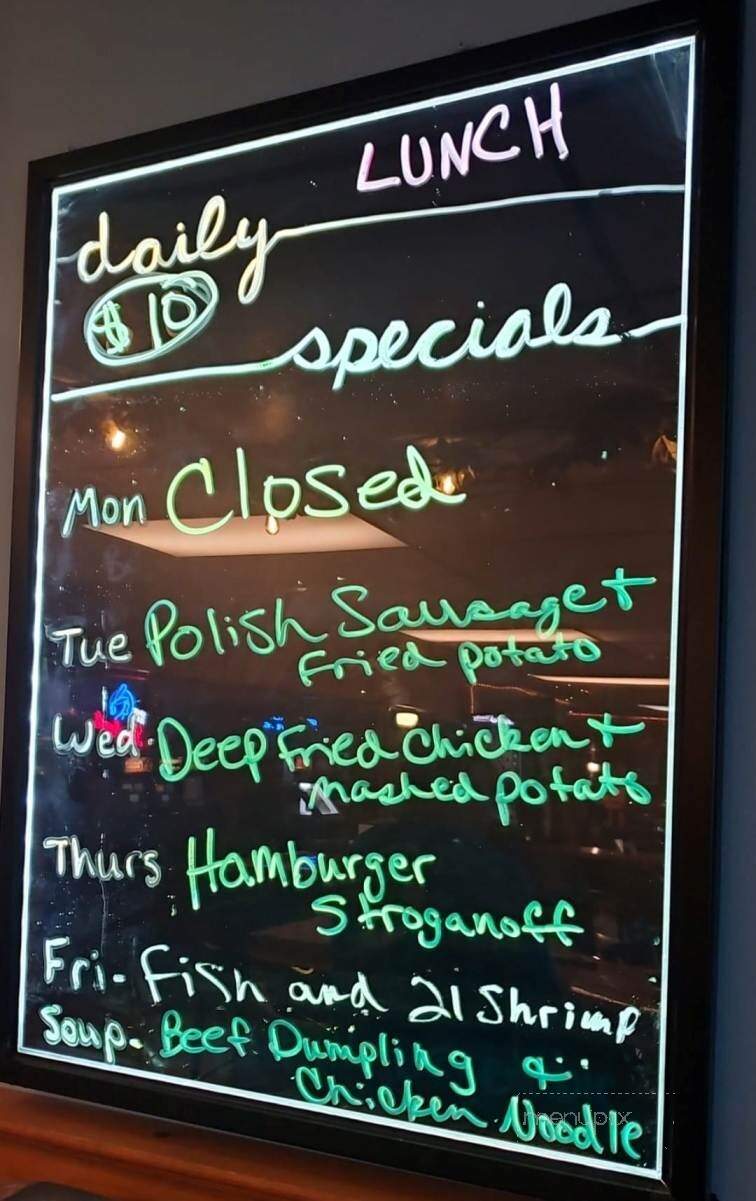 LUNCH
daily
$10
specials
Mon Closed
Tue Polish Sausage +
Fried potato
Wed. Deep Fried Chicken +
mashed potato
Thurs Hamburger
Stroganoff
Fri- Fish and 21 Shrimp
Soup- Beef Dumpling &
Chicken Noodle
menupix